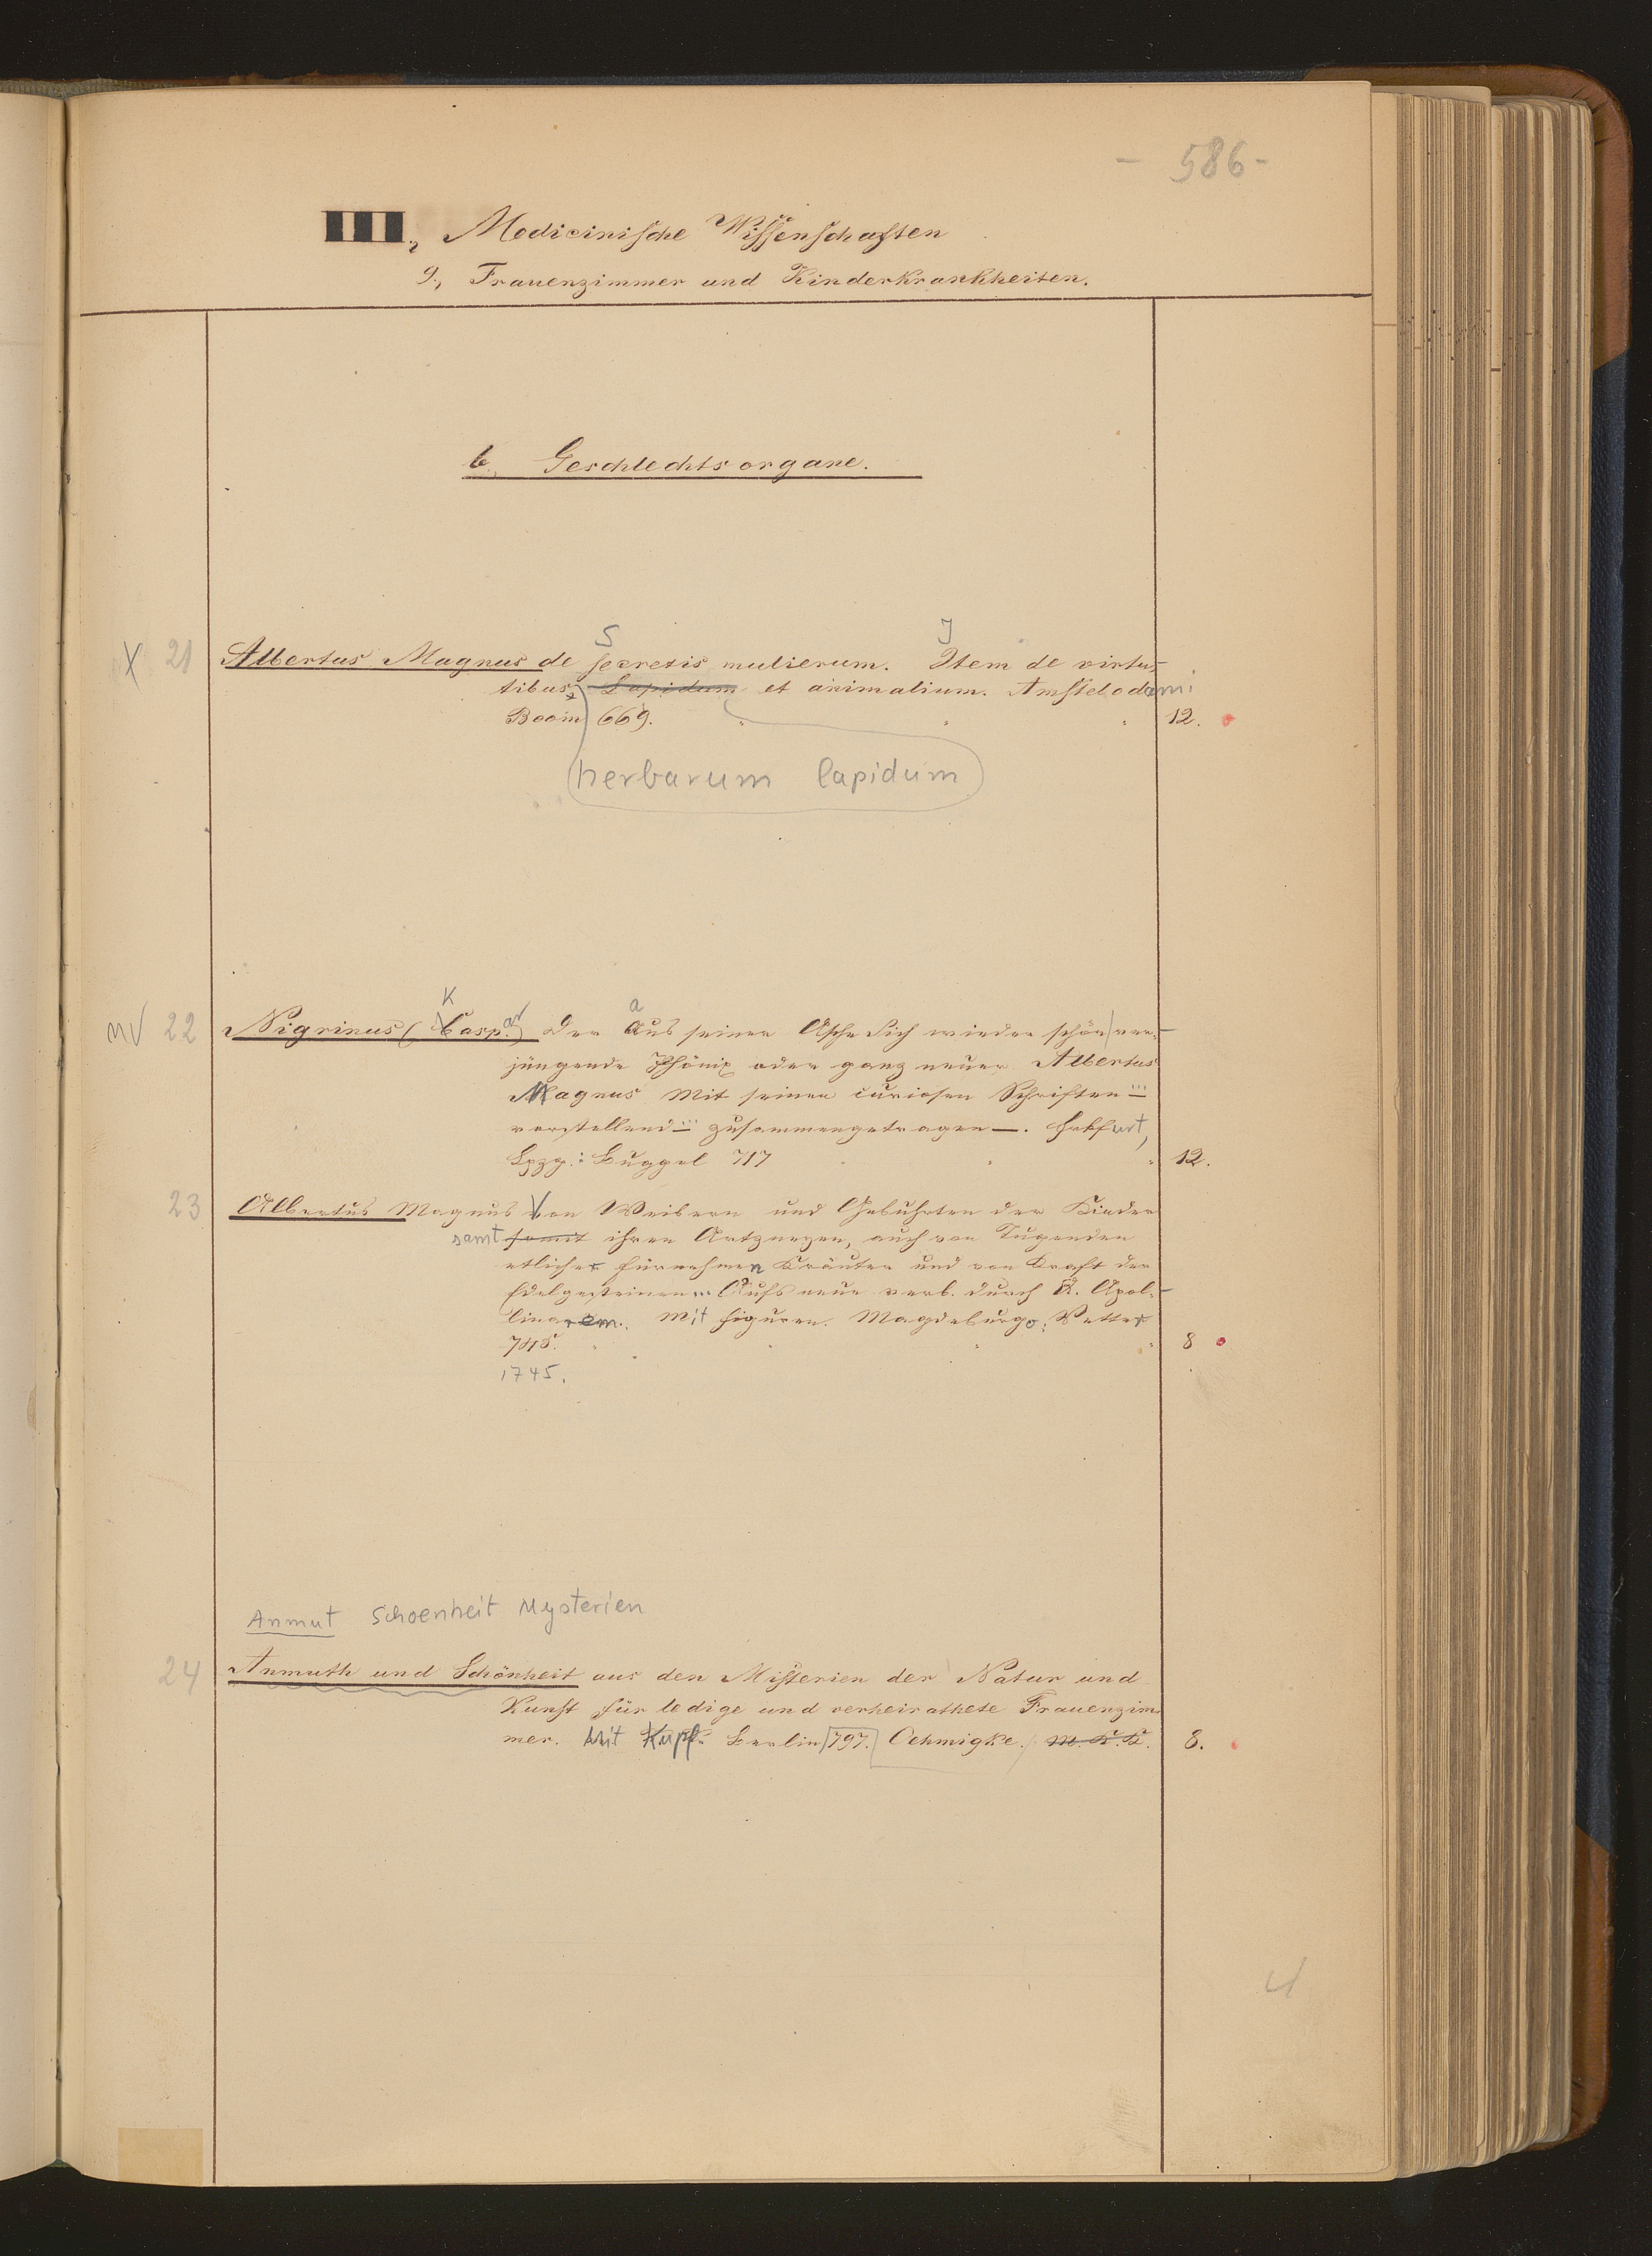 - 586 -
III., Medicinische Wissenschaften
9., Frauenzimmer und Kinderkrankheiten.
b. Geschlechtsorgane.
S J
X 21 Albertus Magnus de secretis mulierum. Item de virtu-
tibus Lapidum et animalium. Amstelodami
Boom 669. 12.
herbarum lapidum
K ar a
nv 22 Nigrinus (Casp.) Der aus seiner Asche sich wieder schön ver-
jüngende Phönix oder ganz neuer Albertus
Magnus Mit seinen curiosen Schriften ...
vorstellend ... zusammengetragen —. Frkfurt,
Lpzg.: Buggel 717 12.
23 Albertus Magnus Von Weibern und Gebuhrten der Kinder
samt somit ihren Artzneyen, auch von Tugenden
etlicher fürnehmen Kräuter und von Kraft der
Edelgesteinen ... Aufs neue verb. durch Q. Apol-
linarem. Mit Figuren. Magdeburgo: Vetter
745. 8
1745.
Anmut Schoenheit Mysterien
24 Anmuth und Schönheit aus den Misterien der Natur und
Kunst für ledige und verheirathete Frauenzim-
mer. Mit Kupf. Berlin 797. Oehmigke. m. K. K. 8.